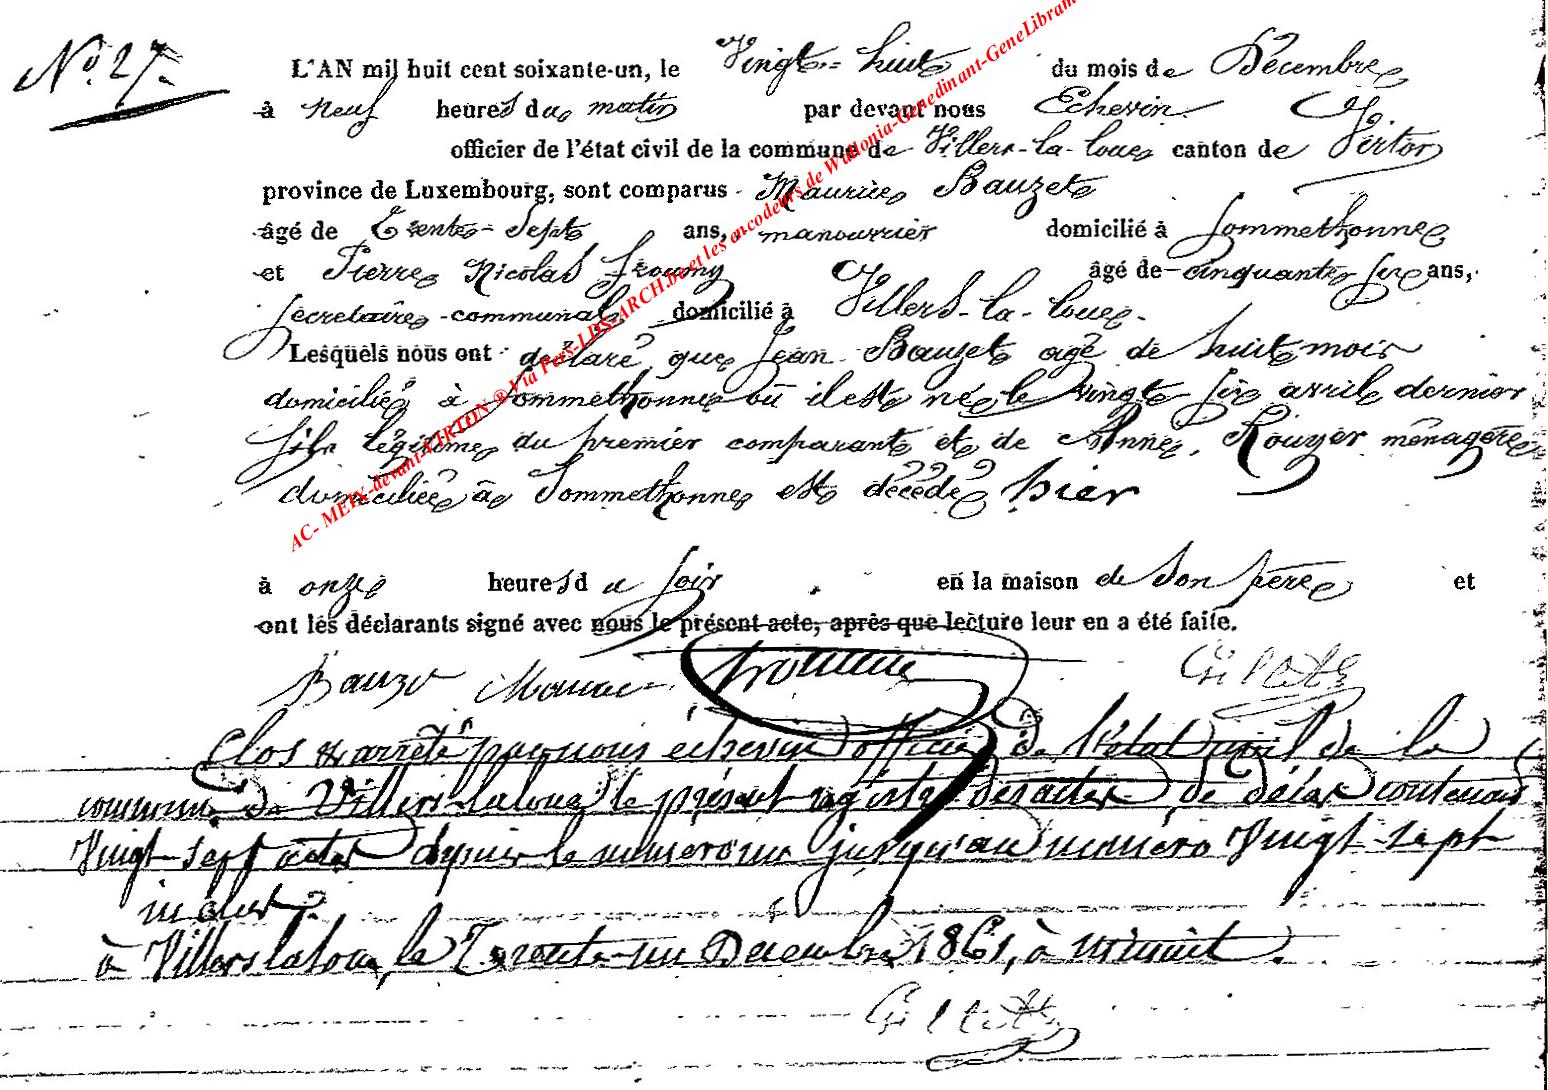 N° 27.
L'AN mil huit cent soixante-un, le Vingt-huit du mois de Décembre
à neuf heures du matin par devant nous Echevin
officier de l'état civil de la commune de Villers-la-loue canton de Virton
province de Luxembourg, sont comparus Maurice Bauzet
âgé de Trente-Sept ans, manouvrier domicilié à Sommethonne
et Pierre Nicolas âgé de cinquante six ans,
secretaire communal domicilié à Villers-la-loue.
Lesquels nous ont déclaré que Jean Bauzet agé de huit mois
domicilié à Sommethonne où il est né le vingt six avril dernier
fils légitime du premier comparant et de Anne Rouyer ménagère
domiciliée à Sommethonne est décédé hier
à onze heures du soir en la maison de son père et
ont les déclarants signé avec nous le présent acte, après que lecture leur en a été faite.
Bauzet Maurice
Clos & arrêté par nous échevin officier de l'état civil de la
commune de Villers-la-loue le présent registre des actes de décès contenant
Vingt-sept actes depuis le numéro un jusqu'au numéro Vingt-sept
inclus.
à Villers la loue, le Trente-un Décembre 1861, à minuit.
AC- MEIX-devant-VIRTON ® Via Pers-LDS-ARCH.be et les encodeurs de Wallonia-Genedinant-GeneLibram